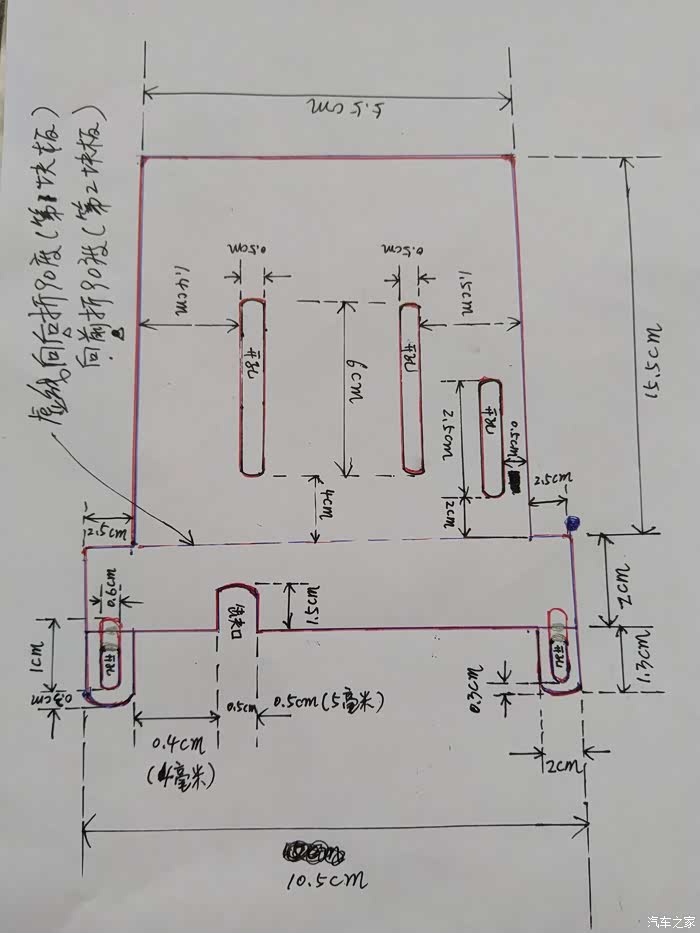 5.5cm
虚线向后折90度(第1块板)
向前折90度(第2块板)
0.5cm
0.5cm
1.4cm
1.5cm
开孔
6cm
开孔
开孔
2.5cm
0.5cm
15.5cm
4cm
2cm
2.5cm
2.5cm
0.6cm
1.5cm
缺夹口
2cm
1cm
开孔
开孔
1.3cm
0.3cm
0.3cm
0.5cm
0.5cm(5毫米)
0.4cm
(4毫米)
2cm
10.5cm
汽车之家